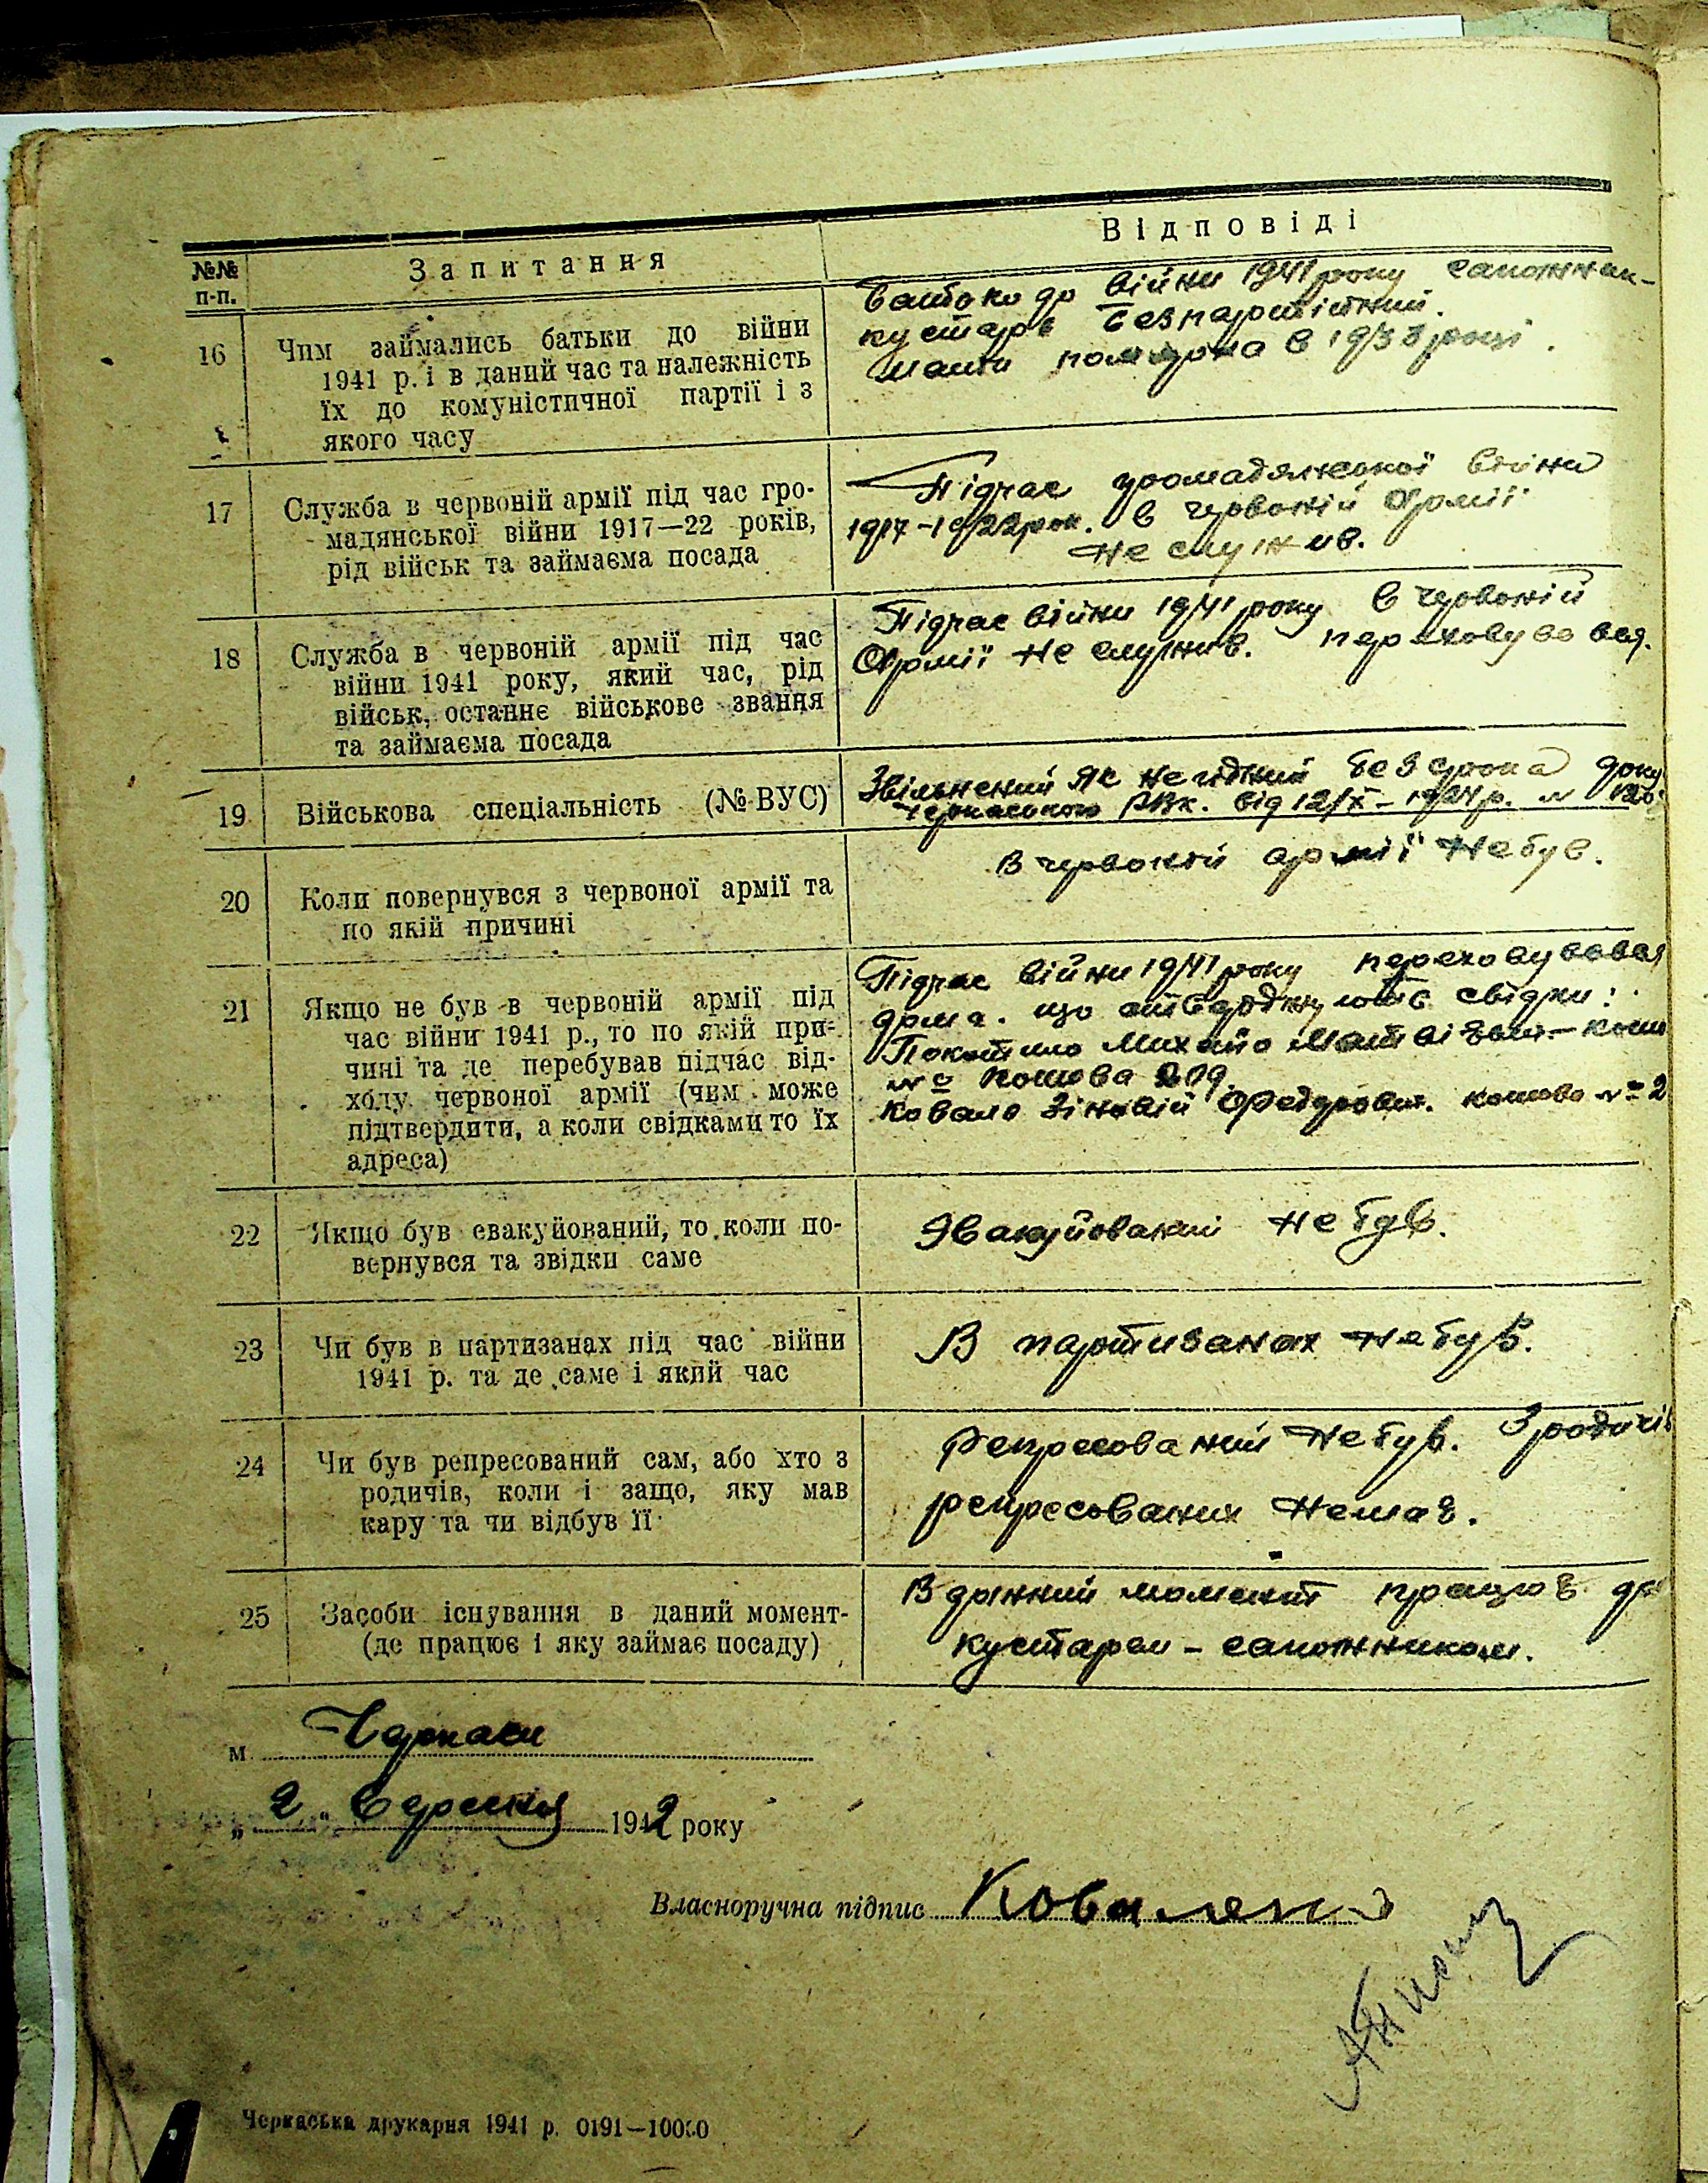 №№ п-п. Запитання Відповіді
16 Чим займались батьки до війни
1941 р. і в даний час та належність
їх до комуністичної партії і з
якого часу
Батько до війни 1941 року сапожник-
кустарь безпартійний.
Мати померла в 1933 році.
17 Служба в червоній армії під час гро-
мадянської війни 1917—22 років,
рід військ та займаєма посада
Підчас громадянської війни
1917-1922 рок. в червоній Армії
не служив.
18 Служба в червоній армії під час
війни 1941 року, який час, рід
військ, останнє військове звання
та займаєма посада
Підчас війни 1941 року в червоній
Армії не служив. переховувався.
19 Військова спеціальність (№ ВУС)
Звільнений як негідний без срока
Черкаського РВК. від 12/X- р. №
20 Коли повернувся з червоної армії та
по якій причині
В червоній армії не був.
21 Якщо не був в червоній армії під
час війни 1941 р., то по якій при-
чині та де перебував підчас від-
ходу червоної армії (чим може
підтвердити, а коли свідками то їх
адреса)
Підчас війни 1941 року переховувався
дома. що стверджують свідки:
Михайло
№ 209
Зіновій Федорович. № 2
22 Якщо був евакуйований, то коли по-
вернувся та звідки саме
Эвакуйований не був.
23 Чи був в партизанах під час війни
1941 р. та де саме і який час
В партизанах не був.
24 Чи був репресований сам, або хто з
родичів, коли і защо, яку мав
кару та чи відбув її
Репресований не був. З родичів
репресованих немає.
25 Засоби існування в даний момент-
(де працює і яку займає посаду)
В данний момент працює
кустарем - сапожником.
м. Черкаси
„2" Вересня 1942 року
Власноручна підпис Коваленко
Черкаська друкарня 1941 р. 0191—10000